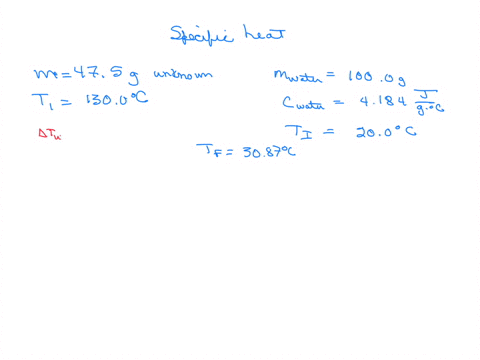 Specific heat
m = 47.5 g unknown
m water = 100.0 g
T₁ = 130.0°C
C water = 4.184 J/g·°C
T_I = 20.0°C
ΔTu
T_F = 30.87°C